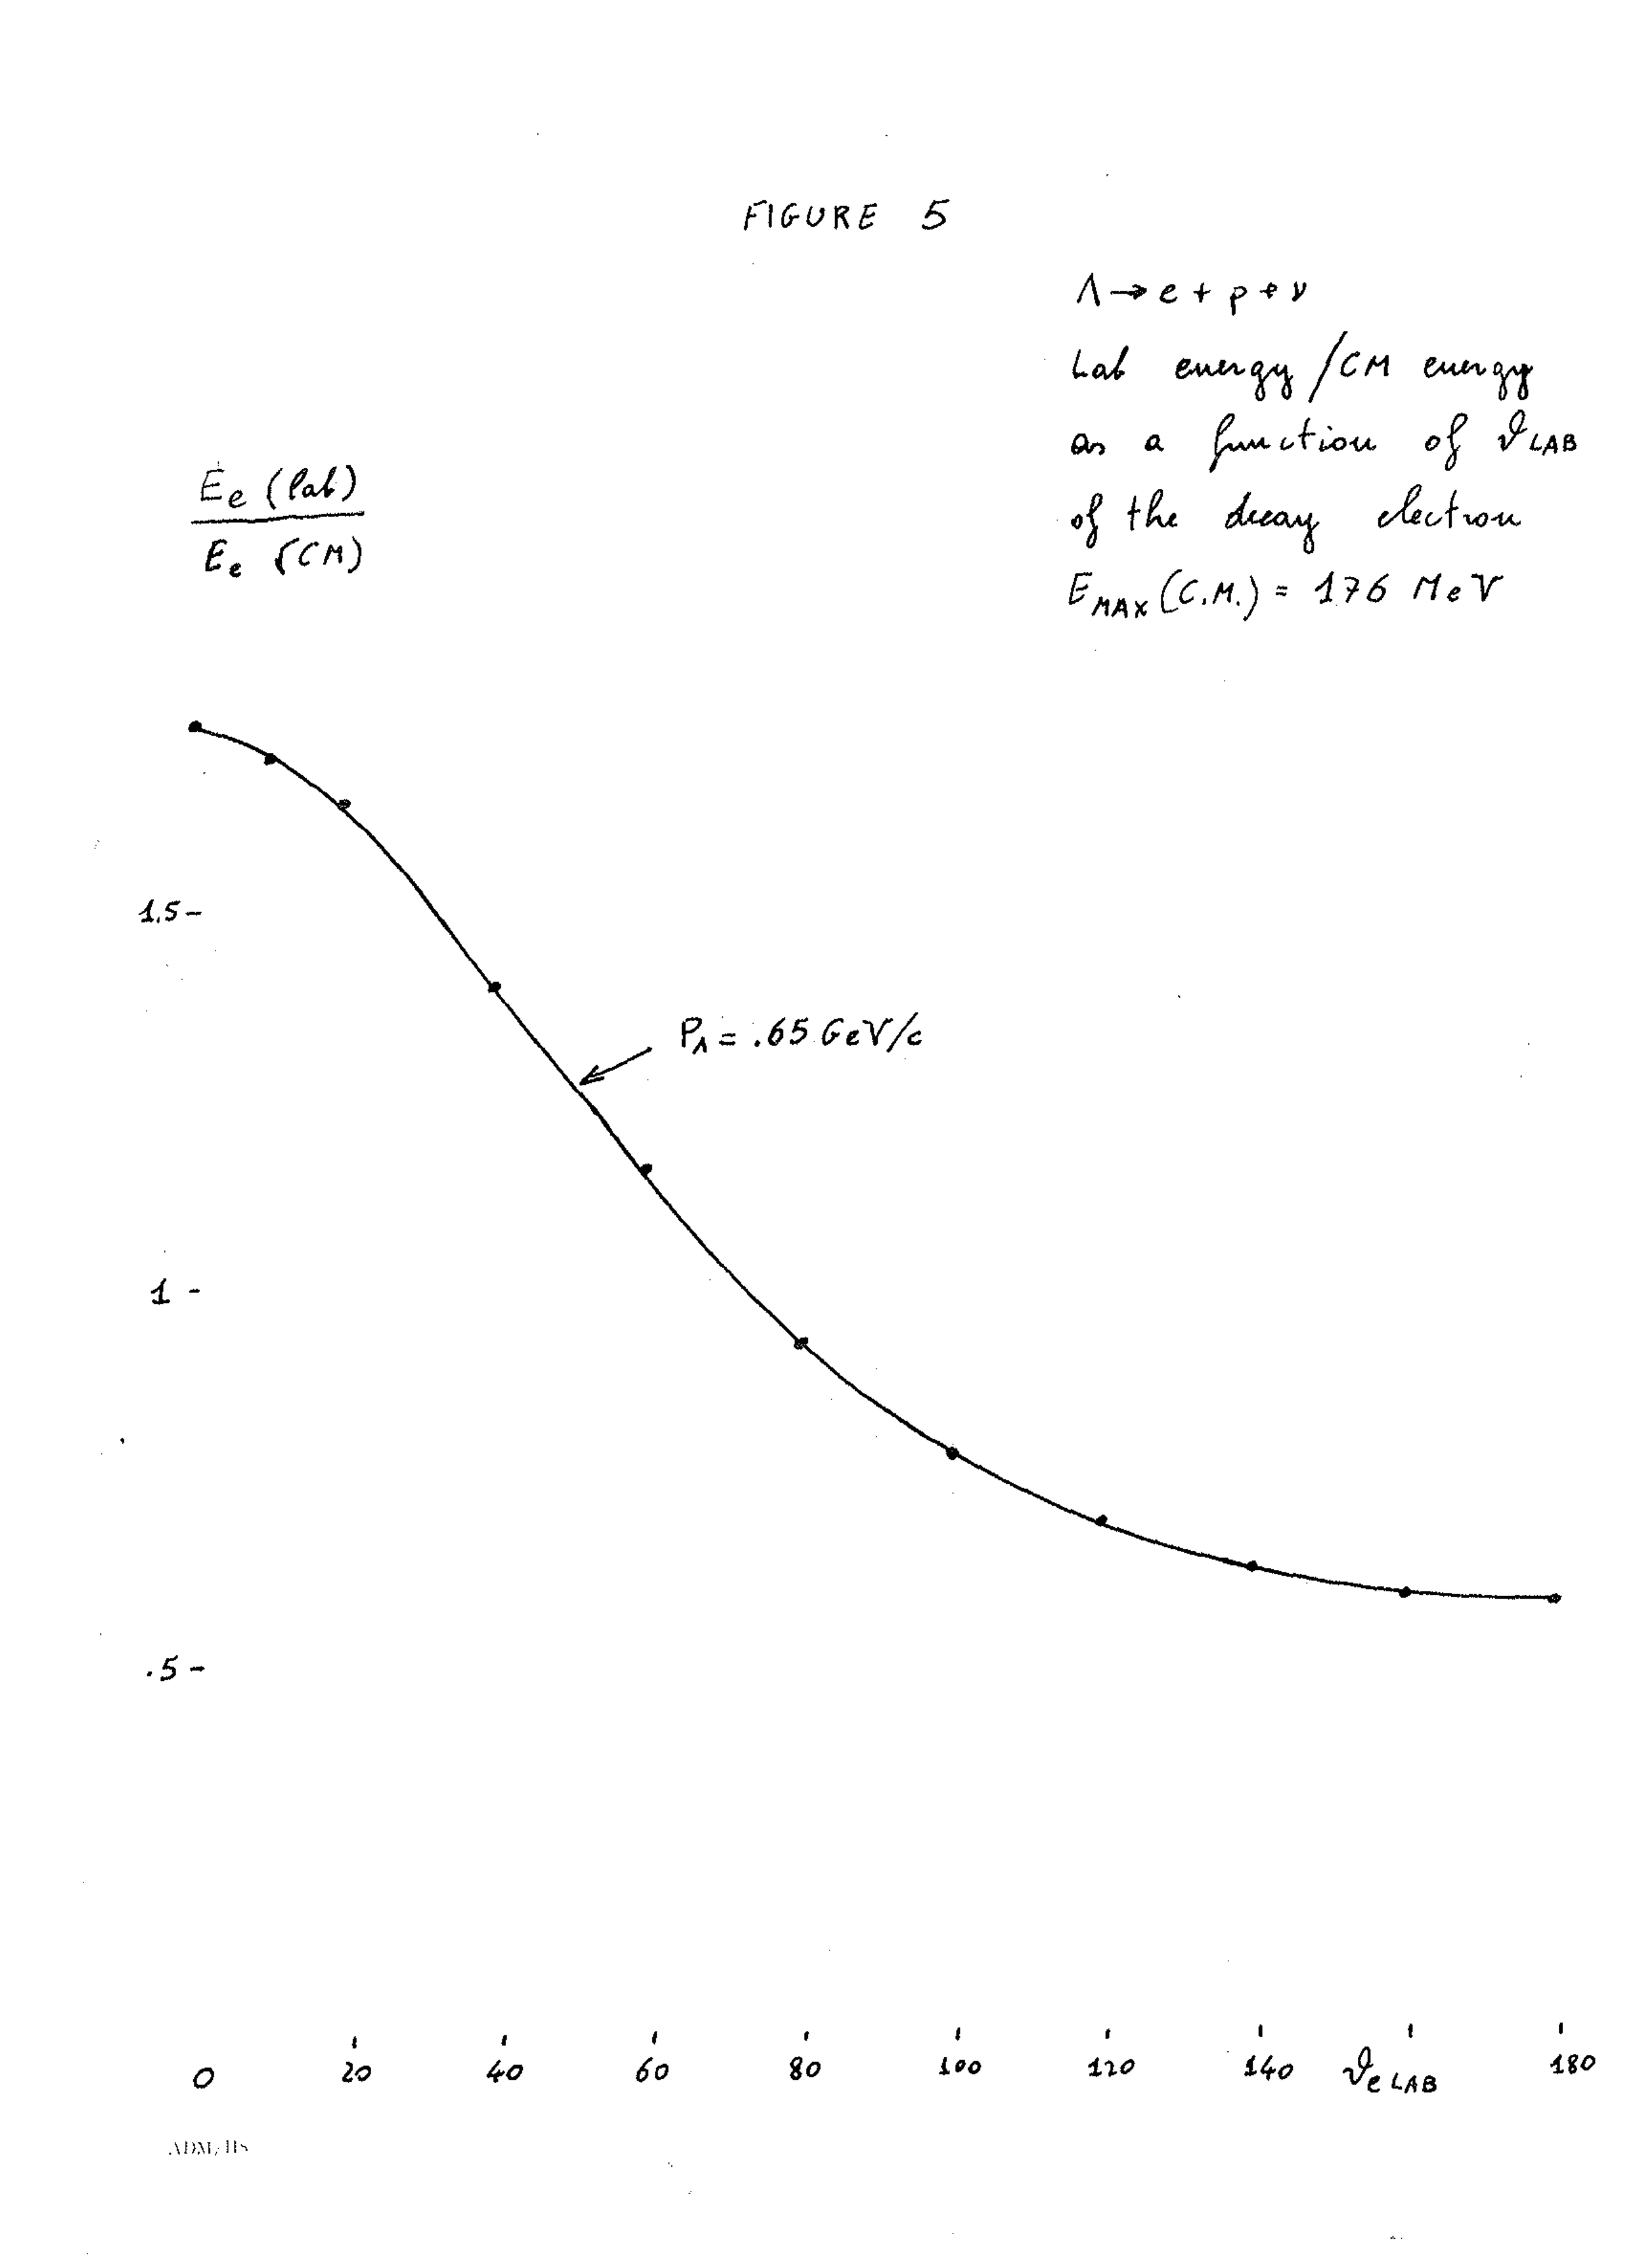 FIGURE 5
Λ → e + p + ν
Lab energy / CM energy
as a function of ϑ LAB
of the decay electron
E MAX (C.M.) = 176 MeV
Ee (lab)
Ee (CM)
1.5 -
PΛ = .65 GeV/c
1 -
.5 -
0 20 40 60 80 100 120 140 ϑe LAB 180